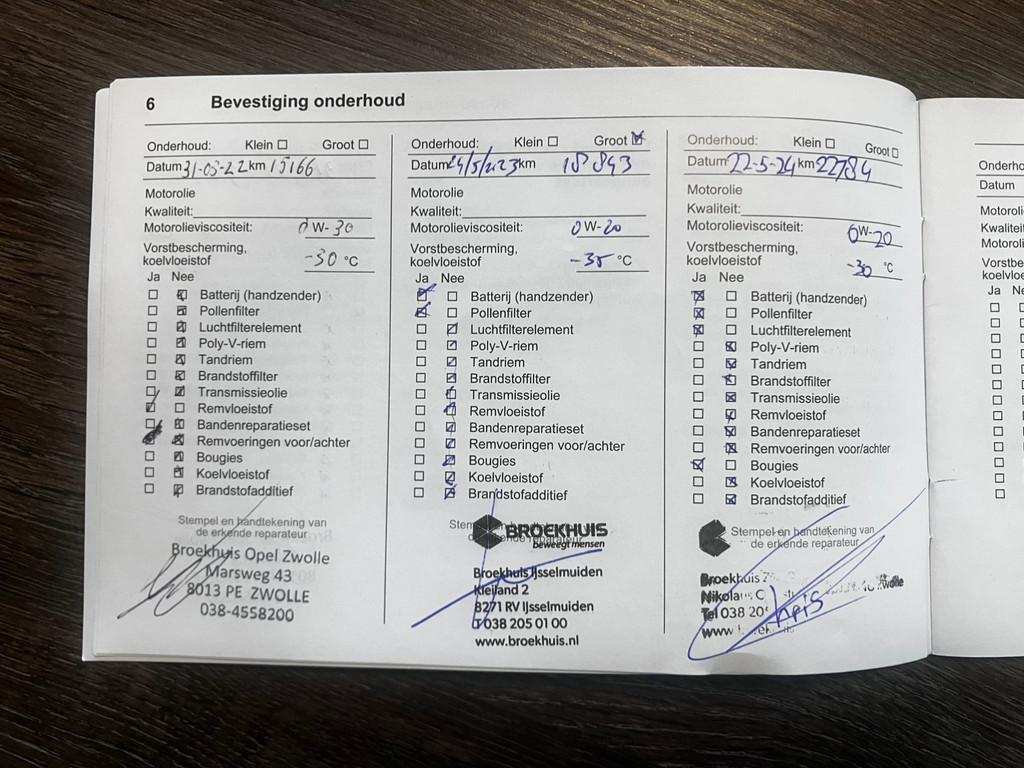 6 Bevestiging onderhoud
Onderhoud: Klein Groot
Datum 31-03-22 km 15166
Motorolie
Kwaliteit:
Motorolieviscositeit: 0W-30
Vorstbescherming,
koelvloeistof -30 °C
Ja Nee
Batterij (handzender)
Pollenfilter
Luchtfilterelement
Poly-V-riem
Tandriem
Brandstoffilter
Transmissieolie
Remvloeistof
Bandenreparatieset
Remvoeringen voor/achter
Bougies
Koelvloeistof
Brandstofadditief
Stempel en handtekening van
de erkende reparateur
Broekhuis Opel Zwolle
Marsweg 43
8013 PE ZWOLLE
038-4558200
Onderhoud: Klein Groot
Datum 24/5/2023 km 18843
Motorolie
Kwaliteit:
Motorolieviscositeit: 0W-20
Vorstbescherming,
koelvloeistof -35 °C
Ja Nee
Batterij (handzender)
Pollenfilter
Luchtfilterelement
Poly-V-riem
Tandriem
Brandstoffilter
Transmissieolie
Remvloeistof
Bandenreparatieset
Remvoeringen voor/achter
Bougies
Koelvloeistof
Brandstofadditief
BROEKHUIS
beweegt mensen
Broekhuis IJsselmuiden
Kleiland 2
8271 RV IJsselmuiden
T 038 205 01 00
www.broekhuis.nl
Onderhoud: Klein Groot
Datum 22-5-24 km 22784
Motorolie
Kwaliteit:
Motorolieviscositeit: 0W-20
Vorstbescherming,
koelvloeistof -30 °C
Ja Nee
Batterij (handzender)
Pollenfilter
Luchtfilterelement
Poly-V-riem
Tandriem
Brandstoffilter
Transmissieolie
Remvloeistof
Bandenreparatieset
Remvoeringen voor/achter
Bougies
Koelvloeistof
Brandstofadditief
Stempel en handtekening van
de erkende reparateur
Broekhuis
Tel 038
Datum
Ja